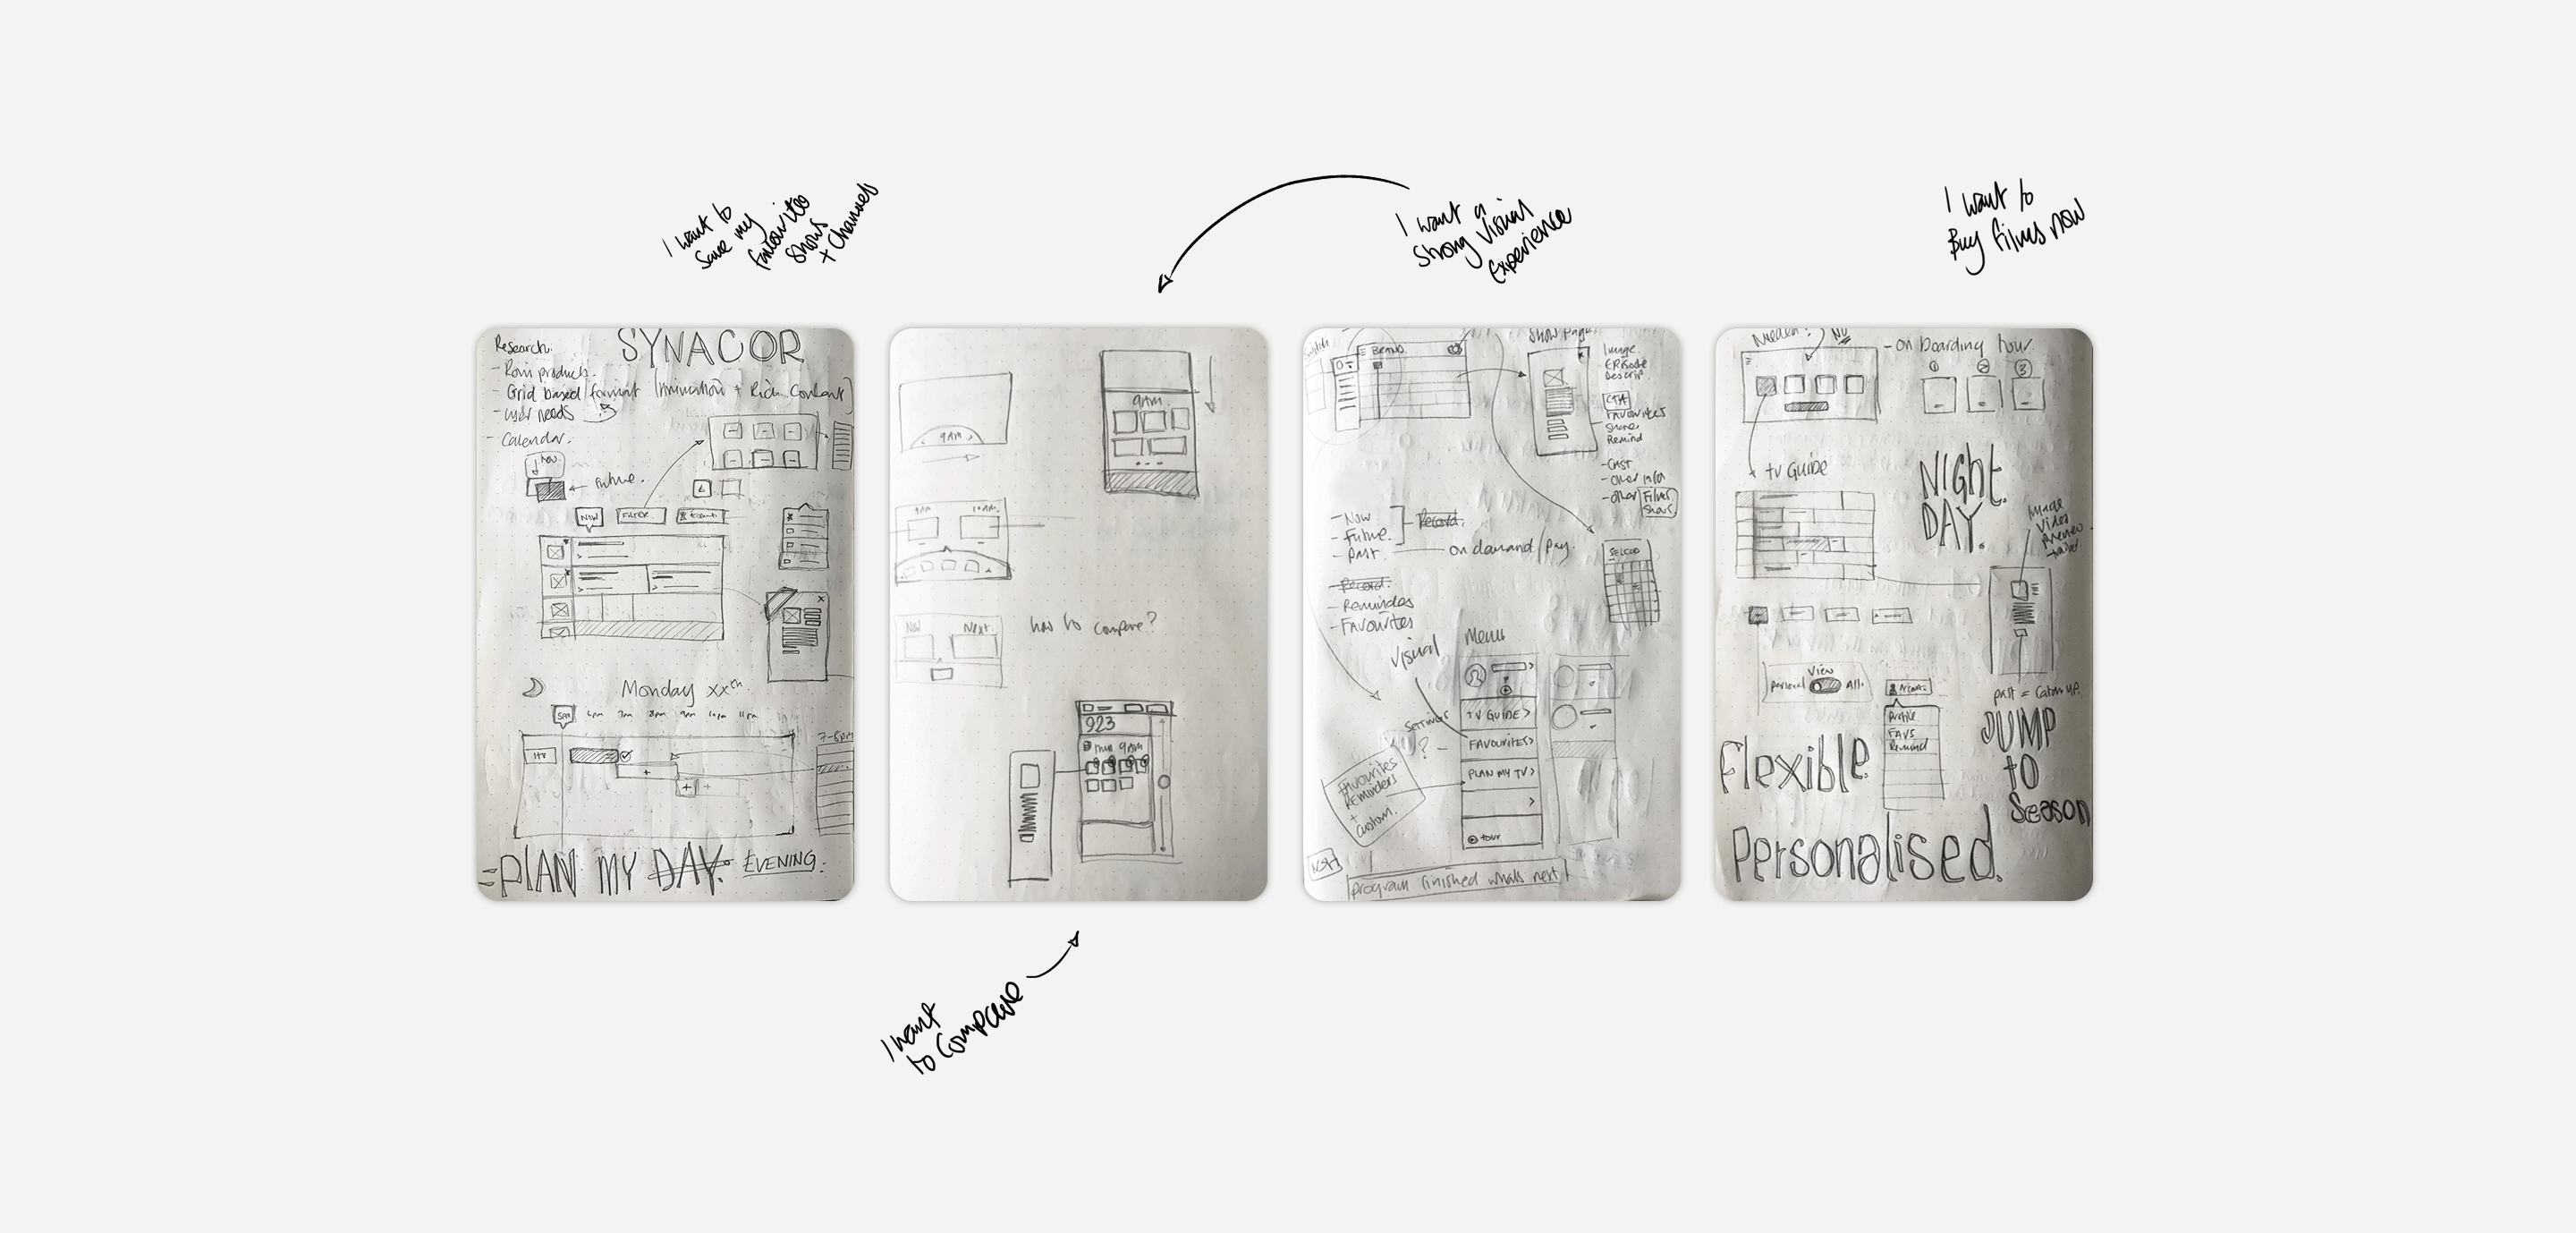 I want to
save my
favourites
shows
+ channels
I want a
strong visual
experience
I want to
Buy films now
SYNACOR
Research.
- Rovi products.
- Grid based format (Animation + Rich Content)
- user needs
- Calendar.
NOW
← future.
NOW
FILTER
Monday xxth.
5pm 6pm 7pm 8pm 9pm 10pm 11pm
7-8pm
= PLAN MY DAY. EVENING.
9AM
9AM.
9AM
10AM.
Now
Next.
how to compare?
923
9AM
BRAND.
Show page.
Image
Episode
Descrip.
CTA
Favourites
Share
Remind
- Cast
- other info
- other Films
Shows.
- Now.
- Future.
- Past
Record.
on demand / pay.
- Record.
- Reminders
- Favourites
Visual
Menu
TV GUIDE >
FAVOURITES >
PLAN MY TV >
>
tour
Settings
? -
Favourites
Reminders
+
Custom.
program finished whats next
- on boarding
1 2 3
tv Guide
NIGHT
DAY.
Image
Video
Preview
trailer.
View
Personal
All.
Profile
FAVS
Remind
past = Catch up.
Flexible
JUMP
to
Season
Personalised.
I want
to compare